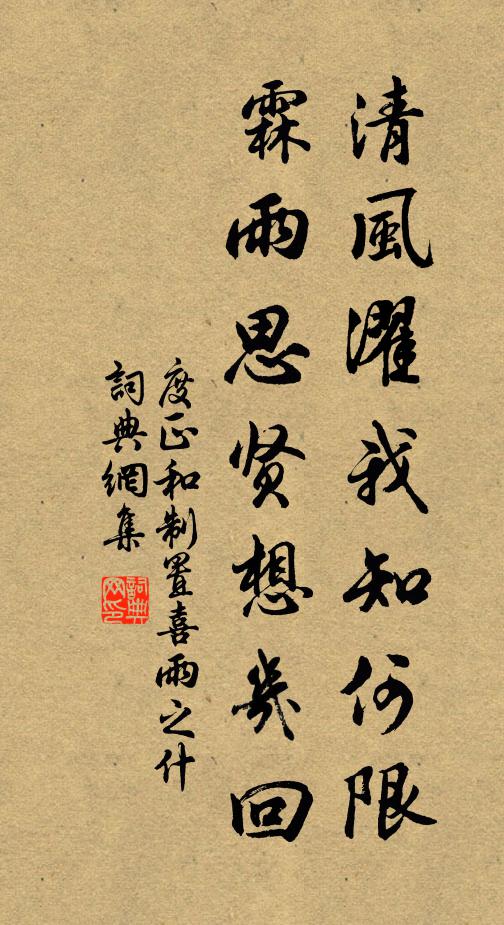 清風濯我知何限
霖雨思贤想幾回
度正和制置喜雨之什
詞典網集
詞典网印